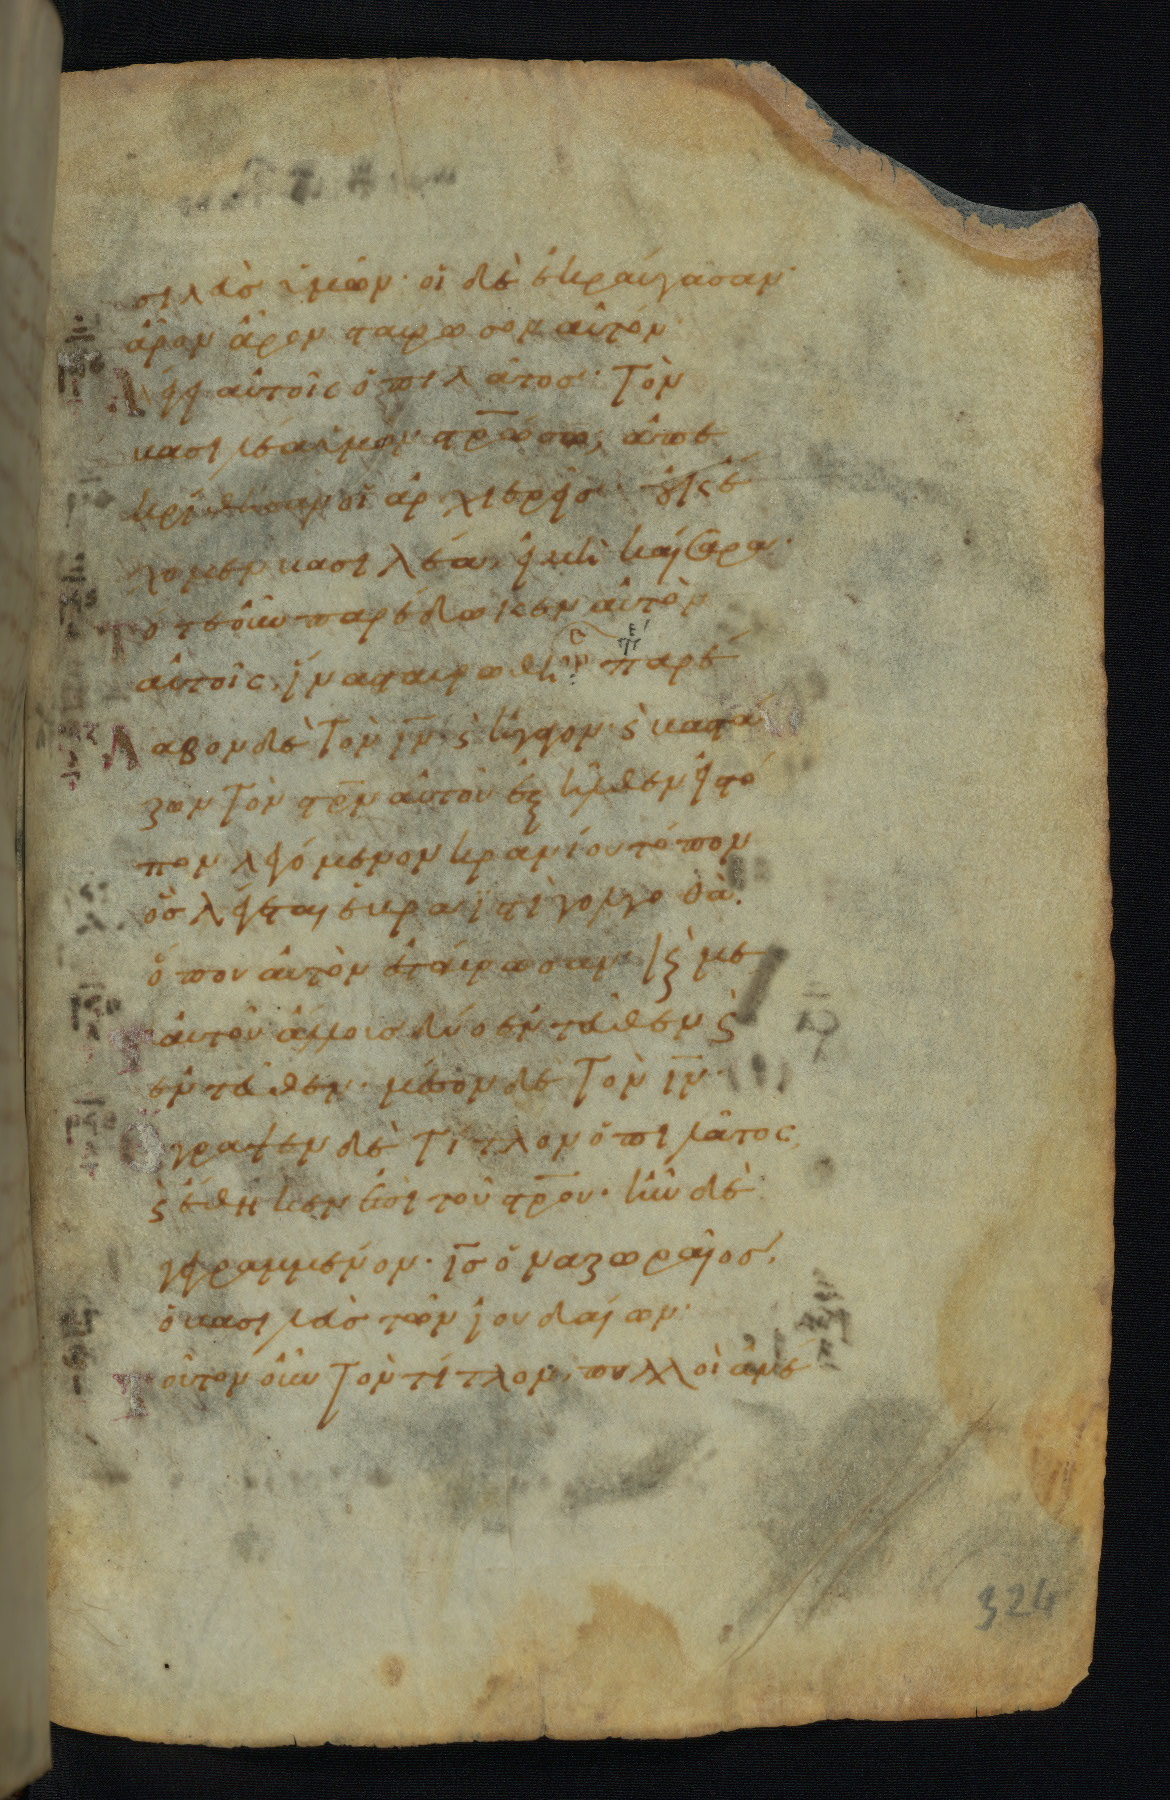 σιλεὺσ ὑμῶν· οἱ δὲ ἐκραύγασαν·
ἆρον ἆρον σταύρωσον αὐτόν·
Λέγει αὐτοῖς ὁ πιλάτοσ· Τὸν
βασιλέα ὑμῶν στρ̅ώσω; ἀπε
κρίθησαν οἱ ἀρχιερεῖσ· οὐκ ἔ
χομεν βασιλέα, εἰ μὴ καίσαρα·
Τότε οὖν παρέδωκεν αὐτὸν
αὐτοῖς, ἵνα σταυρωθῆ· παρέ
Λαβον δὲ Τὸν ι̅ν̅· ϗ ἤγαγον· ϗ βαστά
ζων Τὸν στρ̅ν αὐτοῦ ἐξῆλθεν εἰσ τό
πον λεγόμενον κρανίου τόπον
ὃσ λέγεται ἑβραϊστὶ γολγοθὰ.
ὅπου αὐτὸν ἐσταύρωσαν· ϗ με
Τ αὐτοῦ ἄλλουσ δύο ἐντεῦθεν ϗ
ἐντεῦθεν· μέσον δὲ Τὸν ι̅ν̅·
Ἔγραψεν δὲ Τίτλον ὁ πιλάτος,
ϗ ἔθηκεν ἐπὶ τοῦ στρ̅ου· ἦν δὲ
γεγραμμένον· ι̅σ̅ ὁ ναζωραῖοσ,
ὁ βασιλεὺσ τῶν ἰουδαίων·
Τοῦτον οὖν Τὸν τίτλον, πολλοὶ ἀνέ
324